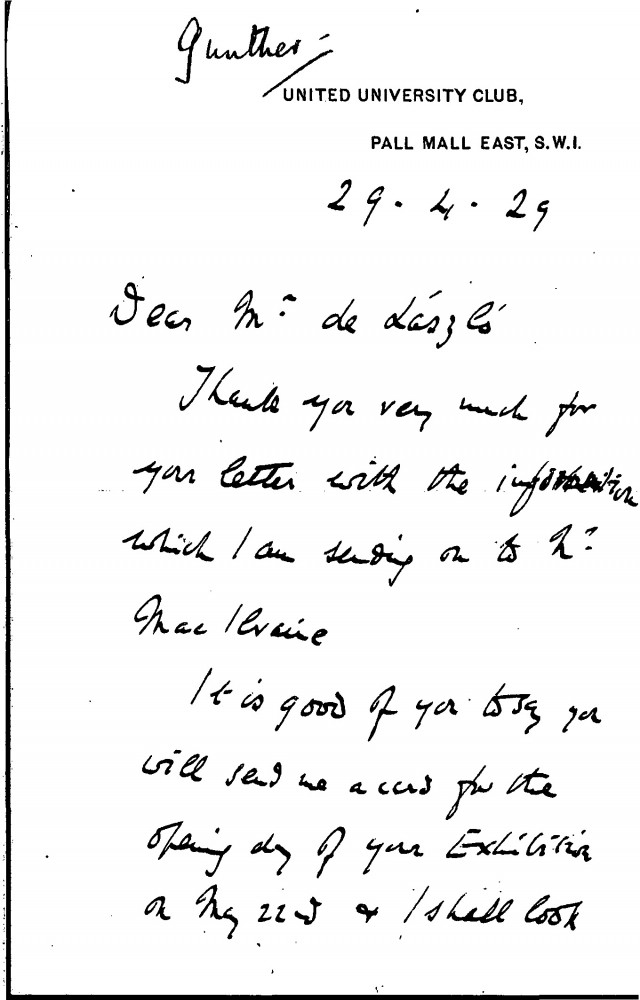 Gunther -
UNITED UNIVERSITY CLUB,
PALL MALL EAST, S.W.1.
29.4.29
Dear Mr. de László
Thank you very much for
your letter with the information
which I am sending on to Mr.
Mac Ilvaine
It is good of you to say you
will send me a card for the
opening day of your Exhibition
on May 22nd & I shall look